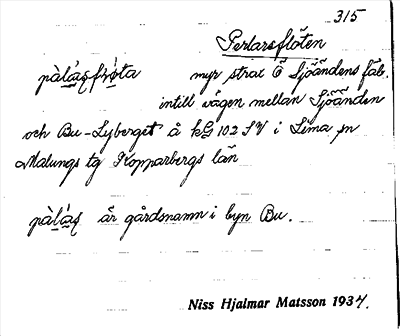 315
Perlarsflöten
myr strax Ö Sjöändens fäb.
intill vägen mellan Sjöänden
och Bu-Lyberget å kG 102 SV i Lima sn
Malungs tg Kopparbergs län
är gårdsnamn i byn Bu.
Niss Hjalmar Matsson 1937.